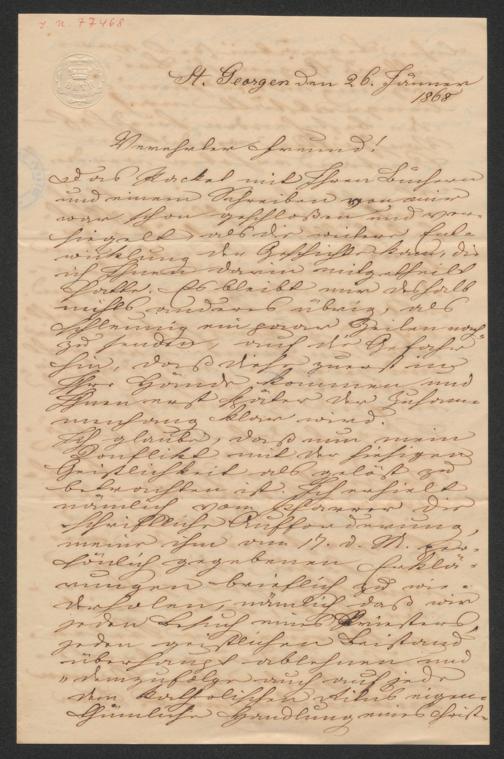 I. N. 77468
BATH
St. Georgen den 26. Jänner
1868
Verehrter Freund!
Das Packet mit Ihren Büchern
und einem Schreiben von mir
war schon geschloßen und ver-
siegelt, als die weitere Ent-
wicklung der Geschichte kam, die
ich Ihnen darin mitgetheilt
hatte. Es bleibt mir deshalb
nichts anderes übrig, als
schleunig ein paar Zeilen nach-
zusenden, auf die Gefahr
hin, daß diese zuerst in
Ihre Hände kommen und
Ihnen erst später der Zusam-
menhang klar wird.
Ich glaube, daß nun mein
Konflikt mit der hiesigen
Geistlichkeit als gelöst zu
betrachten ist. Ich erhielt
nämlich vom Pfarrer die
schriftliche Aufforderung,
meine ihm am 17. d. M. per-
sönlich gegebenen Erklä-
rungen brieflich zu wie-
derholen, nämlich daß wir
jeden Besuch eines Priesters,
jeden geistlichen Beistand
überhaupt ablehnen und
"demzufolge auch auf jede
dem katholischen Ritus eigen-
thümliche Handlung eines Christ-